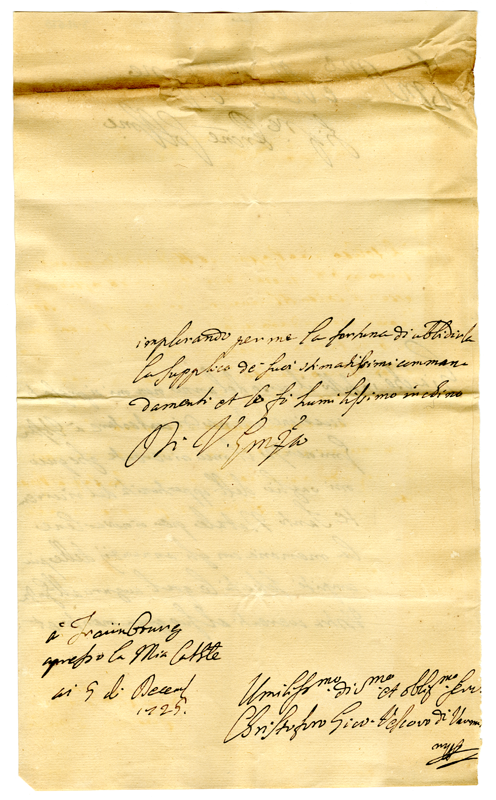 implorando per me la fortuna di obbidirla
la supplico de suoi stimatissimi comman-
damenti et le fò humilissimo inchino
Di V. Em.za
à
apresso la Mia
ai 5 di Decemb
1725.
Umilissmo. di smo et obligmo. Ser.
Christoforo Vescovo di
mpp